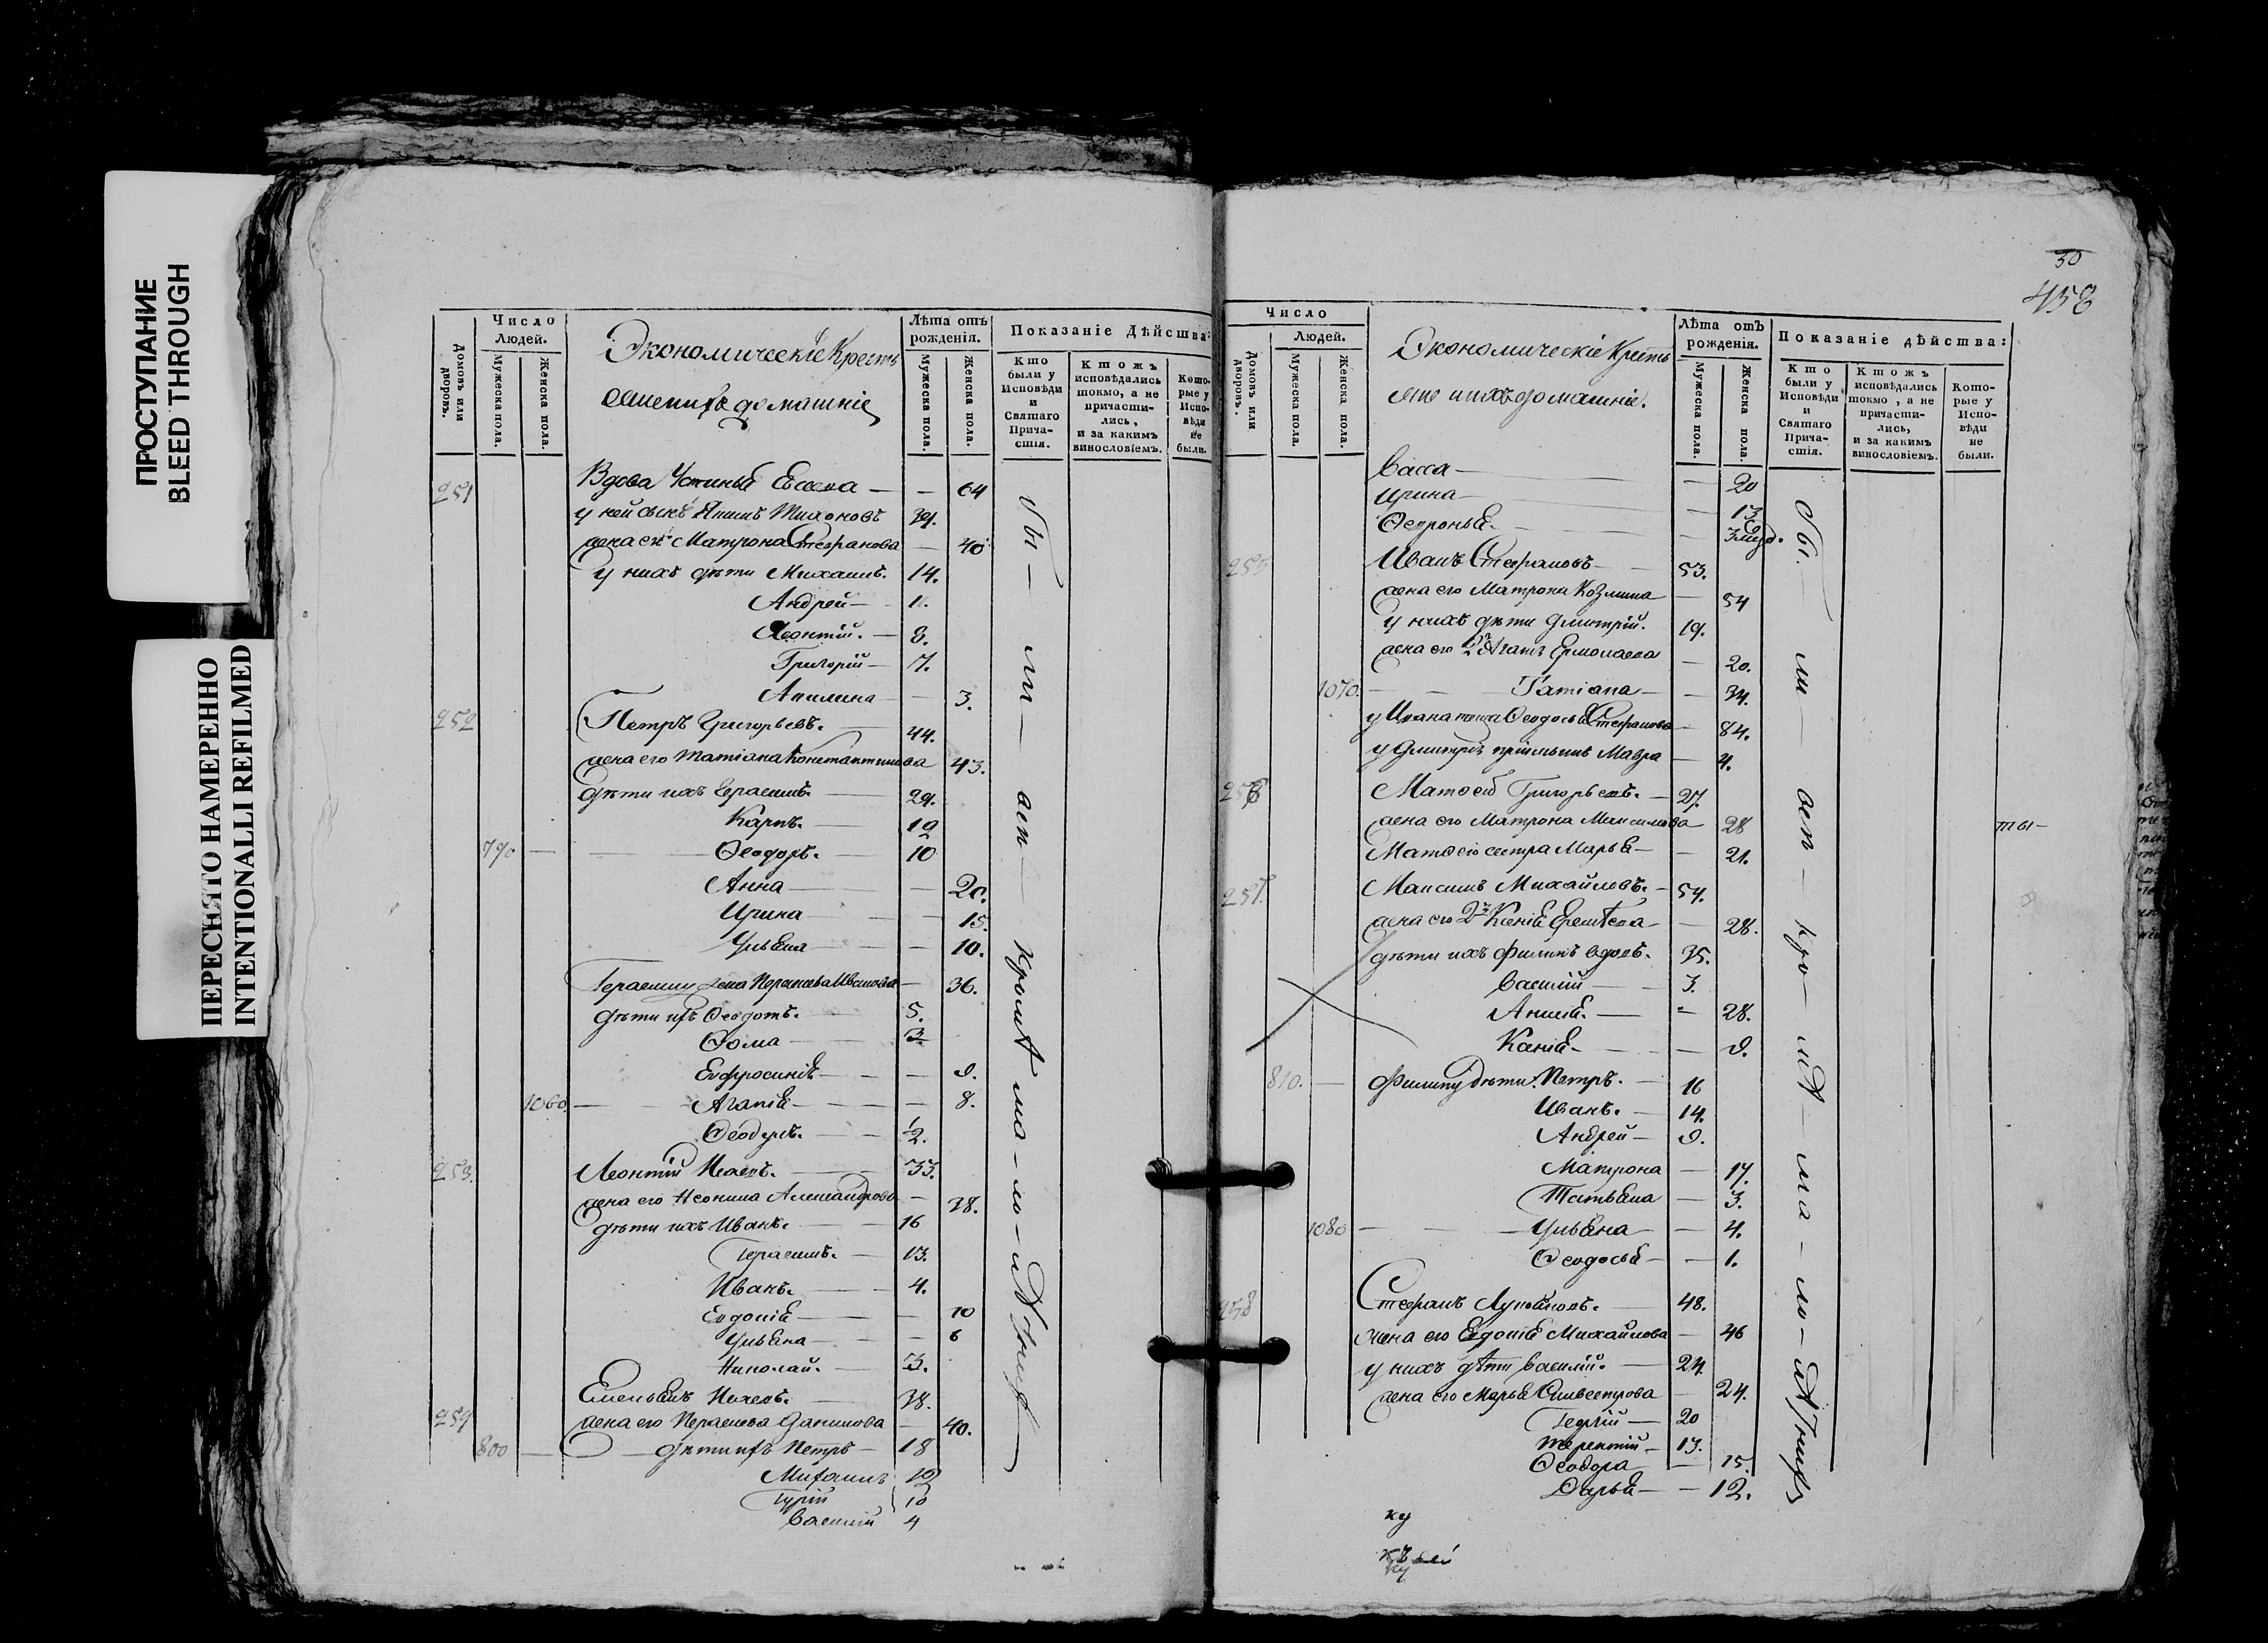 ПРОСТУПАНИЕ
BLEED THROUGH
ПЕРЕСНЯТО НАМЕРЕННО
INTENTIONALLI REFILMED
Число
Людей.
Домовъ или дворовъ.
Мужеска пола.
Женска пола.
Экономическіе Кресть
яне и ихъ домашніе
Лѣта отъ рожденія.
Мужеска пола.
Женска пола.
Показаніе Дѣйства:
Кто были у Исповѣди и Святаго Прича-стія.
Ктожъ исповѣдались токмо, а не причасти-лись, и за какимъ винословіемъ.
Кото-рые у Испо-вѣди не были.
251 Вдова Устинья Евсеева — — 64
у ней сынъ Якимъ Тихоновъ 39.
жена ег Матрона Стефанова — 40
у нихъ дѣти Михаилъ. 14.
Андрей — 11.
Леонтій. — 8.
Григорій — 7.
Акилина — — 3.
252 Петръ Григорьевъ. — 44.
жена его Татіана Константинова 43.
дѣти ихъ Герасимъ. — 29.
Карпъ. — 19
790 — Ѳеодоръ. — 10
Анна — — 20.
Ирина — — 15.
Ульяна — — 10.
Герасиму жена Парасковья Иванова — 36.
дѣти ихъ Ѳеодотъ. 5.
Ѳома — 3.
Евфросинія — — 9.
1060. — Агапія — — 8.
Ѳеодулъ. — 1/2.
253. Леонтій Исаевъ. — 33.
жена его Неонила Александрова — 38.
дѣти ихъ Иванъ. — 16
Герасимъ. — 13.
Иванъ. — 4.
Евдокія — — 10
Ульяна — — 6
Николай. — 3.
Емельянъ Исаевъ. — 38.
254 жена его Парасковья Данилова — 40.
800 — дѣти ихъ Петръ — 18
Михаилъ 12
Гурій 10
Василій 4
бы — ли — аст — кромѣ ма — ло — лѣтних —
30
458
Число
Людей.
Домовъ или дворовъ.
Мужеска пола.
Женска пола.
Экономическіе Кресть
яне и ихъ домашніе.
Лѣта отъ рожденія.
Мужеска пола.
Женска пола.
Показаніе дѣйства:
Кто были у Исповѣди и Святаго Прича-стія.
Ктожъ исповѣдались токмо, а не причасти-лись, и за какимъ винословіемъ.
Кото-рые у Испо-вѣди не были.
Васса — — 20
Ирина — — 13
Ѳевронья. — —
255 Иванъ Стефановъ — 53.
жена его Матрона Козмина — 54
у нихъ дѣти Димитрій. 19.
жена его Агапія Ермолаева — 20.
1070. — Татіана — — 34.
у Ивана теща Ѳеодосья Стефанова — 84.
у Димитрія пріемышъ Мавра — 4.
256 Матвей Григорьевъ. — 27.
жена его Матрона Максимова 28
Матвея сестра Марья — — 21.
257. Максимъ Михайловъ. — 54.
жена его 2я Ксенія Еремѣева — 28.
дѣти ихъ Филипъ вдовъ. 35.
Василій — 3.
Анисія. — — 28.
Ксенія — — 9.
810. — Филипу дѣти. Петръ. — 16
Иванъ. — 14.
Андрей — 9.
Матрона — 17.
Татьяна — 3.
1080 — Ульяна — — 4.
Ѳеодосья — — 1.
258 Стефанъ Лукояновъ. — 48.
жена его Евдокія Михайлова — 46
у нихъ дѣти Василій. — 24
жена его Марья Силвестрова — 24.
Георгій — 20
Терентій — 13.
Ѳеодора — — 15.
Дарья — — 12.
бы. — ли — аст — кро — мѣ — ма — ло — лѣтнихъ
ты —
ку